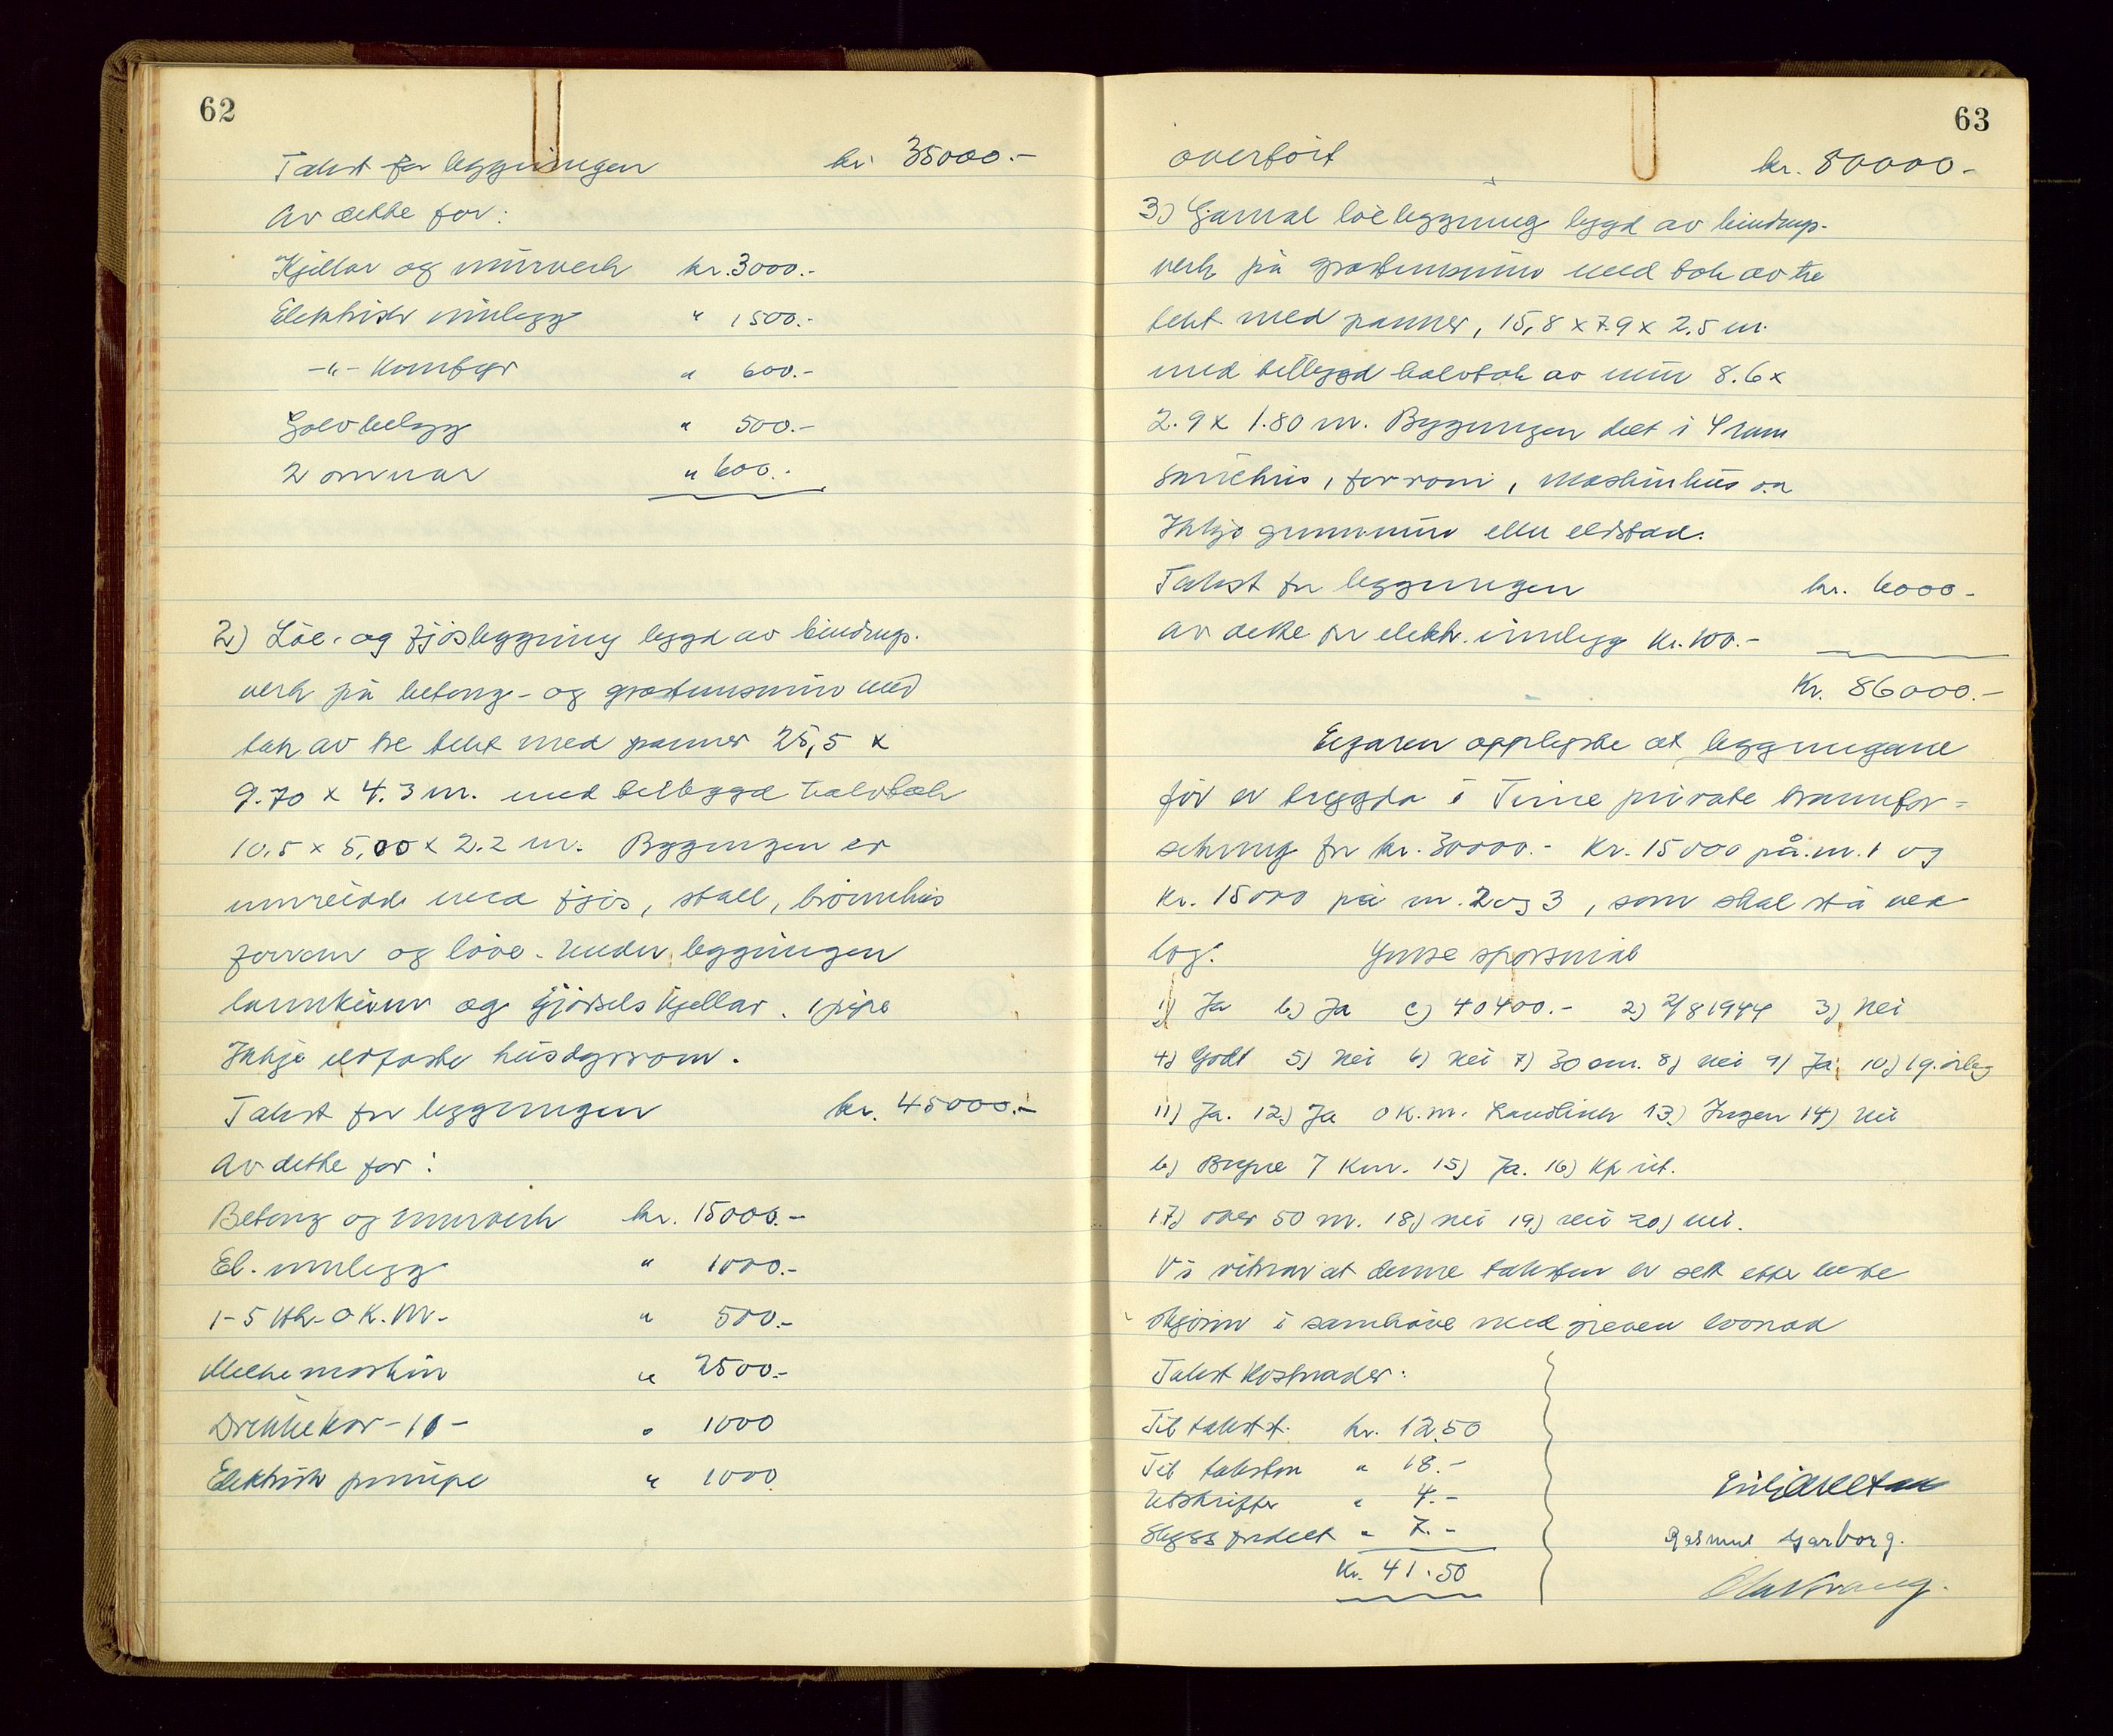 62
Takst for byggningen kr 35000.-
Av dette for:
Kjellar og murverk kr. 3000.-
Elektrisk innlegg " 1500.-
-"- Komfyr " 600.-
Golvbelegg " 500.-
2 omnar " 600.-
2) Löe- og fjösbyggning bygd av bindings-
verk på betong- og gråsteinsmur med
tak av tre tekt med panner 25,5 x
9.70 x 4.3 m. med tilbygd halvtak
10,5 x 5,00 x 2.2 m. Bygningen er
innreidd med fjös, stall, brönnhus
forrom og löve. Under byggningen
lannkum og gjödselskjellar. 1 pipe
Ikkje eldfaste husdyrrom.
Takst for byggningen kr. 45000.-
Av dette for:
Betong og murverk kr. 15000.-
El. innlegg " 1000.-
1-5 Hk. O K.M. " 500.-
Melkemaskin " 2500.-
Drikkekar -10- " 1000
Elektrisk pumpe " 1000
63
overfört kr. 80000.-
3) Gamal löebyggning bygd av bindings-
verk på gråsteinsmur med tak av tre
tekt med panner, 15,8 x 7.9 x 2.5 m.
med tilbygd halvtak av mur 8.6 x
2.9 x 1.80 m. Bygningen delt i 4 rum
sauehus, forrom, maskinhus o.a
Ikkje grunnmur eller eldstad.
Takst for byggningen kr. 6000.-
Av dette for elektr. innlegg kr. 100.-
Kr. 86000.-
Eigaren opplyste at byggningane
för er trygda i Time private brannfor-
sikring for kr. 30000.- Kr. 15000 på nr. 1 og
Kr. 15000 på nr. 2 og 3, som skal stå ved
lag. Ymse spörsmål
1) Ja b) Ja c) 40400.- 2) 2/8 1944 3) Nei
4) Godt 5) Nei 6) Nei 7) 30 cm. 8) Nei 9) Ja 10) 1 g. årleg
11) Ja. 12) Ja O K.M. Landbruk 13) Ingen 14) Nei
b) Bryne 7 Km. 15) Ja. 16)
17) over 50 m. 18) Nei 19) Nei 20) Nei.
Vi vitnar at denne taksten er sett etter beste
skjönn i samhöve med gjeven lovnad
Takst kostnader:
Til takst. kr. 12.50
Til taksten " 18.-
Utskrifter " 4.-
Skyss fordelt " 7.-
Kr. 41.50
Rasmus Garborg.